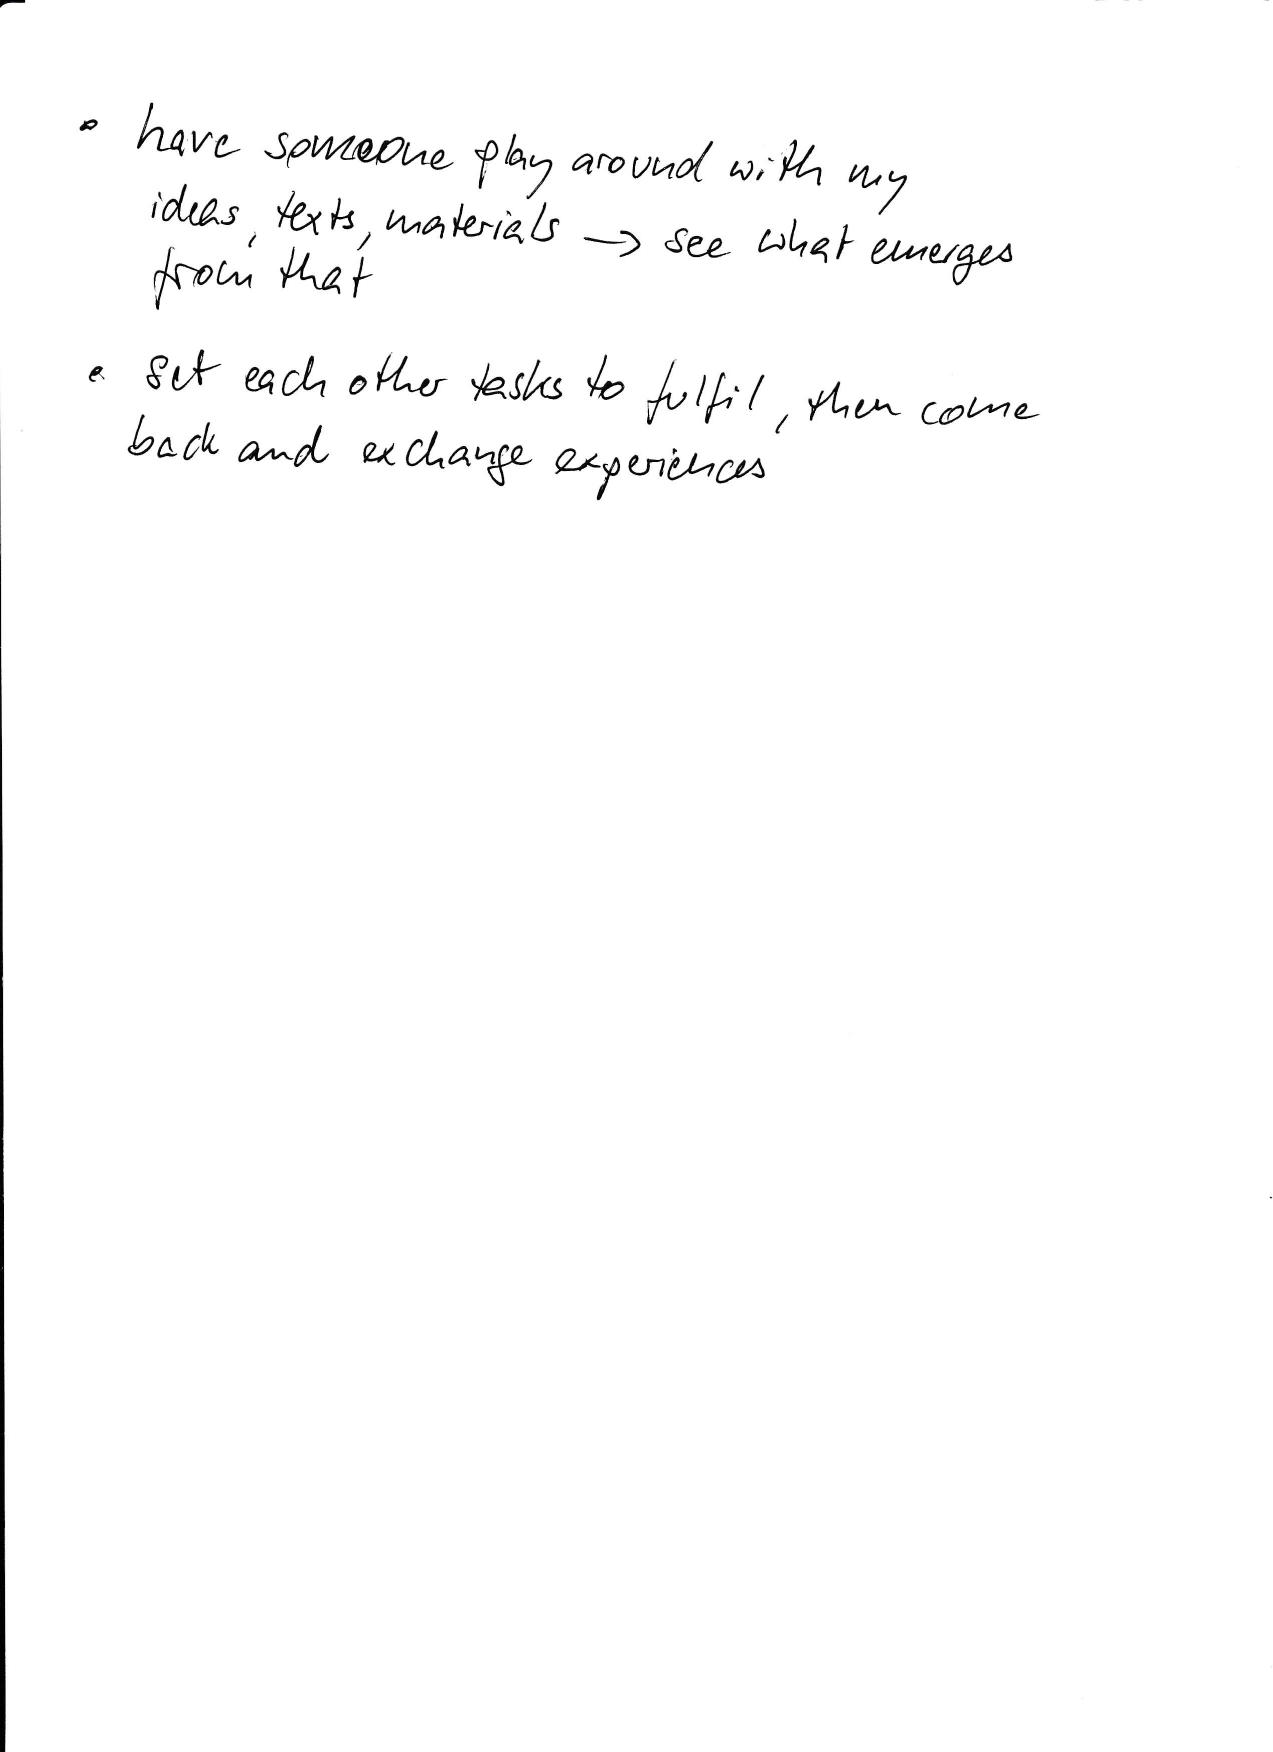 • have someone play around with my
ideas, texts, materials → see what emerges
from that
• set each other tasks to fulfil, then come
back and exchange experiences